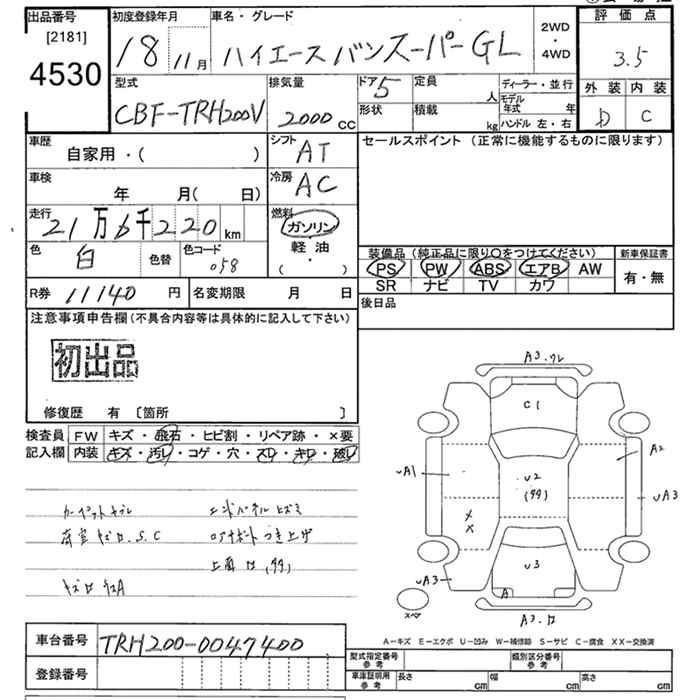 出品番号 [2181] 4530
初度登録年月 18 11月
車名・グレード ハイエースバンスーパーGL
2WD・4WD
評価点 3.5
外装 D 内装 C
型式 CBF-TRH200V
排気量 2000cc
ドア 5
形状
定員 人
積載 kg
ディーラー・並行
モデル年式 年
ハンドル 左・右
車歴 自家用・( )
シフト AT
セールスポイント (正常に機能するものに限ります)
車検 年 月( 日)
冷房 AC
走行 21万6千220km
燃料 ガソリン・軽油・( )
色 白
色替
色コード 058
装備品 (純正品に限り○をつけてください)
PS PW ABS エアB AW
SR ナビ TV カワ
新車保証書 有・無
R券 11140円
名変期限 月 日
後日品
注意事項申告欄(不具合内容等は具体的に記入して下さい)
初出品
修復歴 有 〔箇所 〕
検査員記入欄
FW キズ・飛石・ヒビ割・リペア跡・×要
内装 キズ・汚レ・コゲ・穴・スレ・キレ・破レ
A3.ワレ
C1
A2
UA1
U2
UA3
××
U3
UA3
A
スペア
A3.ロ
A-キズ E-エクボ U-凹み W-補修跡 S-サビ C-腐食 XX-交換済
車台番号 TRH200-0047400
登録番号
型式指定番号 参考
類別区分番号 参考
車庫証明用 参考 長さ cm 幅 cm 高さ cm